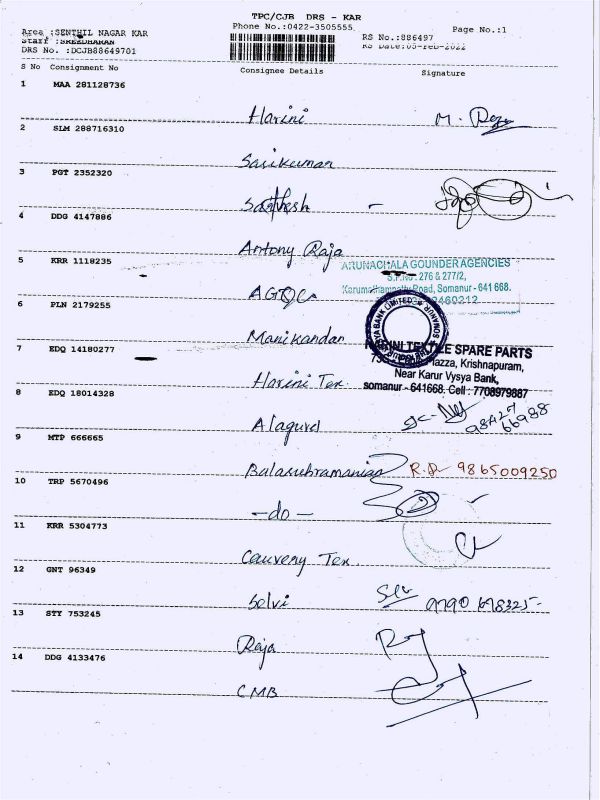 TPC/CJB DRS - KAR
Area :SENTHIL NAGAR KAR
Phone No.:0422-3505555
Page No.:1
Staff :SREEDHARAN
RS No.:886497
DRS No. :DCJB88649701
RS Date:05-Feb-2022
S No Consignment No Consignee Details Signature
1 MAA 281128736
Harini M.
2 SLM 288716310
Sasikumar
3 PGT 2352320
Sathesh -
4 DDG 4147886
Antony Raja
ARUNACHALA GOUNDER AGENCIES
5 KRR 1118235
S.F.No: 276 & 277/2,
Karumathampatty Road, Somanur - 641 668.
AGQC
2460212
6 PLN 2179255
BANK LIMITED
SOMANUR
Manikandan
7 EDQ 14180277
HARINI TEXTILE SPARE PARTS
Plazza, Krishnapuram,
Near Karur Vysya Bank,
somanur - 641668. Cell : 7708979887
Harini Tex.
8 EDQ 18014328
Alaguvel
98427
66988
9 MTP 666665
Balasubramanian R.R 9865009250
10 TRP 5670496
- do -
11 KRR 5304773
Cauvery Tex.
12 GNT 96349
Selvi
13 STY 753245
Raja
14 DDG 4133476
CMB